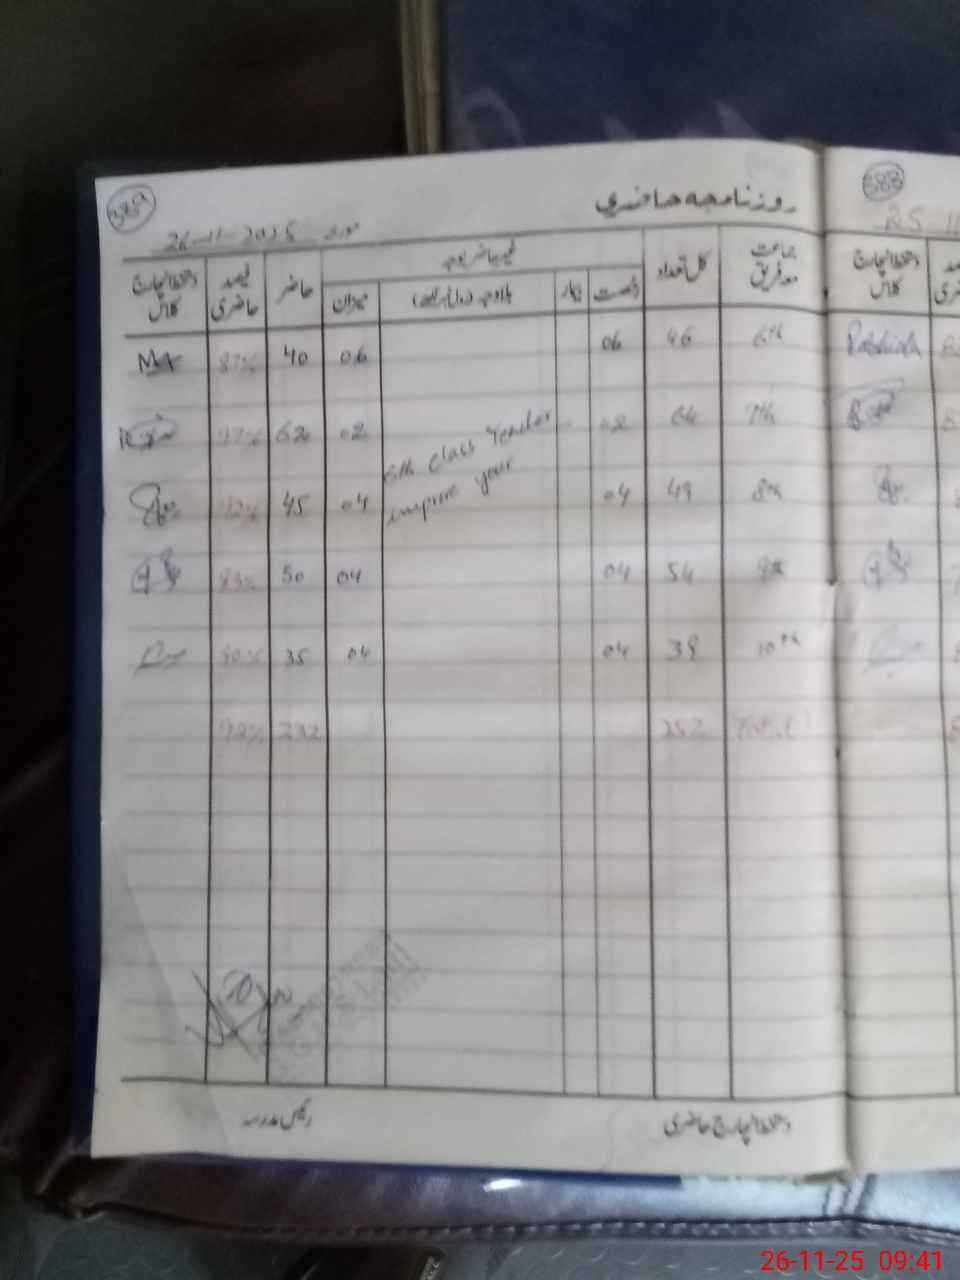 589
روزنامچہ حاضری
588
26-11-2025 مورخہ
25-11
جماعت معہ فریق
کل تعداد
غیر حاضر بوجہ
رخصت
بیمار
میزان
حاضر
فیصد حاضری
دستخط انچارج کلاس
دستخط انچارج کلاس
6th 46 06 06 40 87%
7th 64 02 02 62 97%
6th class Teacher
improve your
8th 49 04 04 45 92%
9th 54 04 04 50 93%
10th 39 04 04 35 90%
Total 252 232 92%
دستخط انچارج حاضری
رئیس مدرسہ
26-11-25 09:41